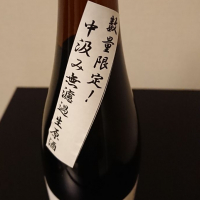 数量限定！
中汲み無濾過生原酒